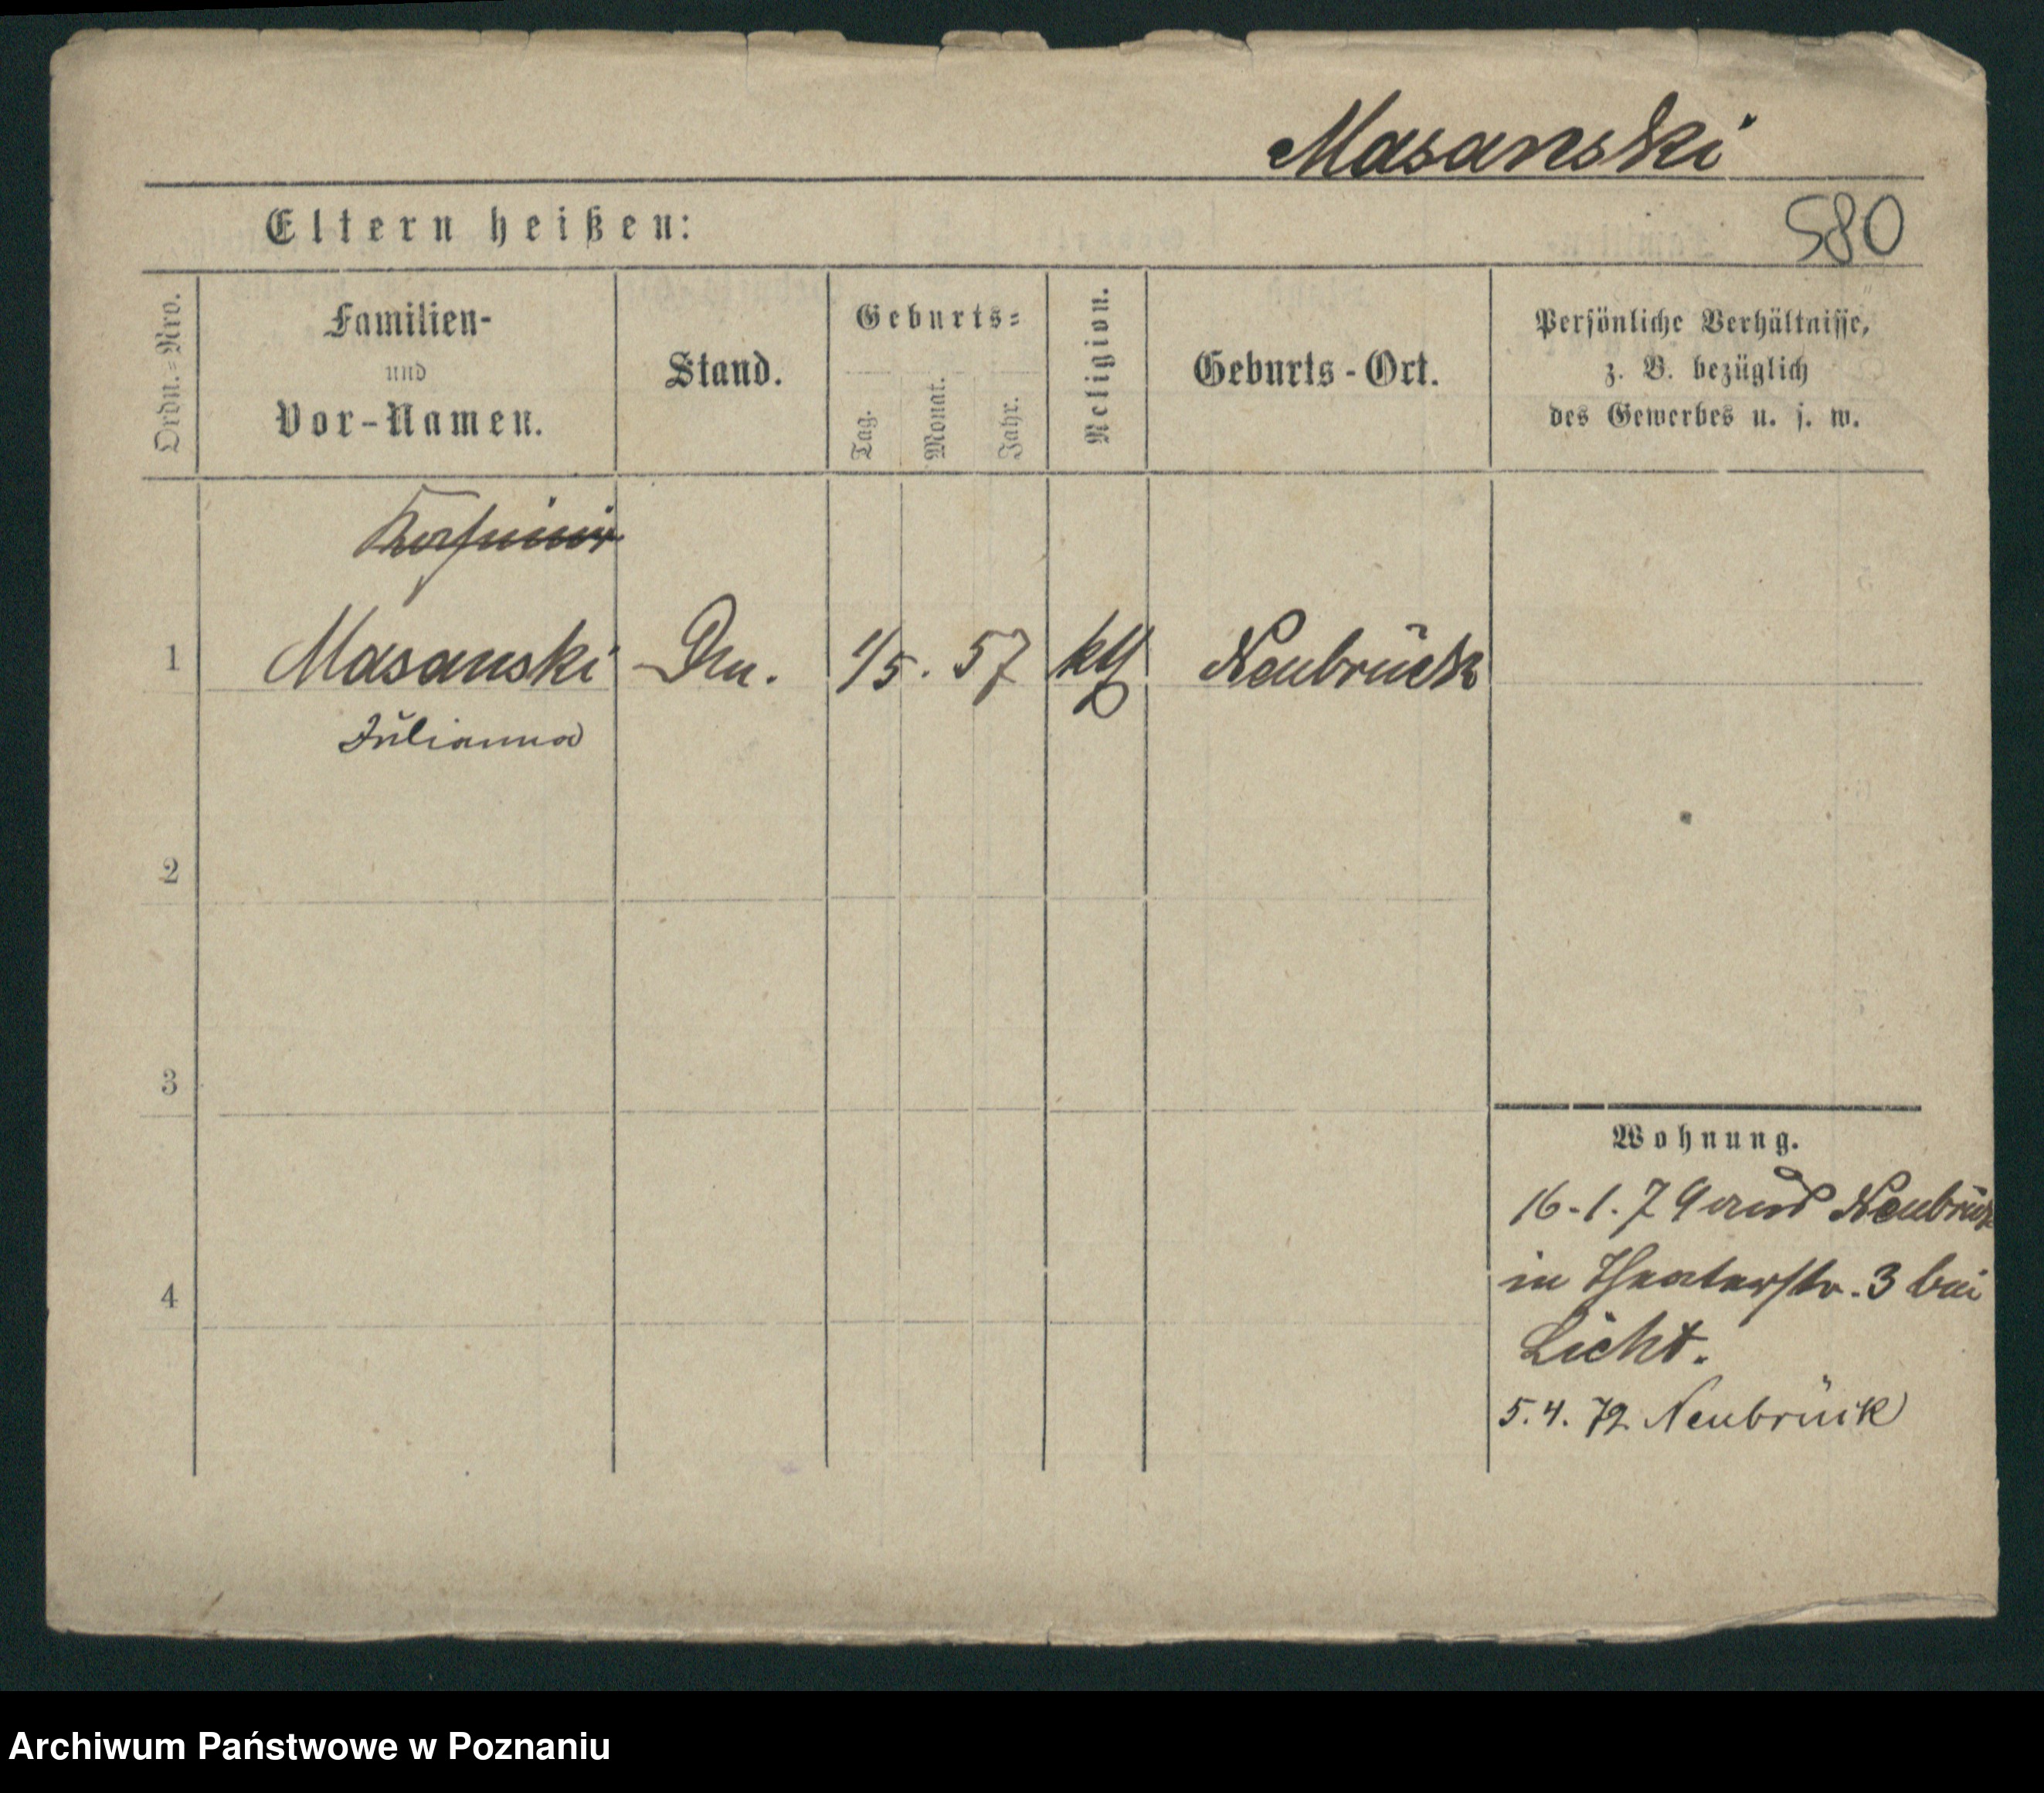 Masanski
580
Eltern heißen:
Ordn.-Nro.
Familien-
und
Vor-Namen.
Stand.
Geburts-
Tag.
Monat.
Jahr.
Religion.
Geburts-Ort.
Persönliche Verhältnisse,
z. B. bezüglich
des Gewerbes u. s. w.
1 Masanski 1/5. 57 kth Neubrück
Julianna
2
3
4
Wohnung.
16.1.79 aus Neubrück
in Theaterstr. 3 bei
Licht.
5.4.79 Neubrück
Archiwum Państwowe w Poznaniu